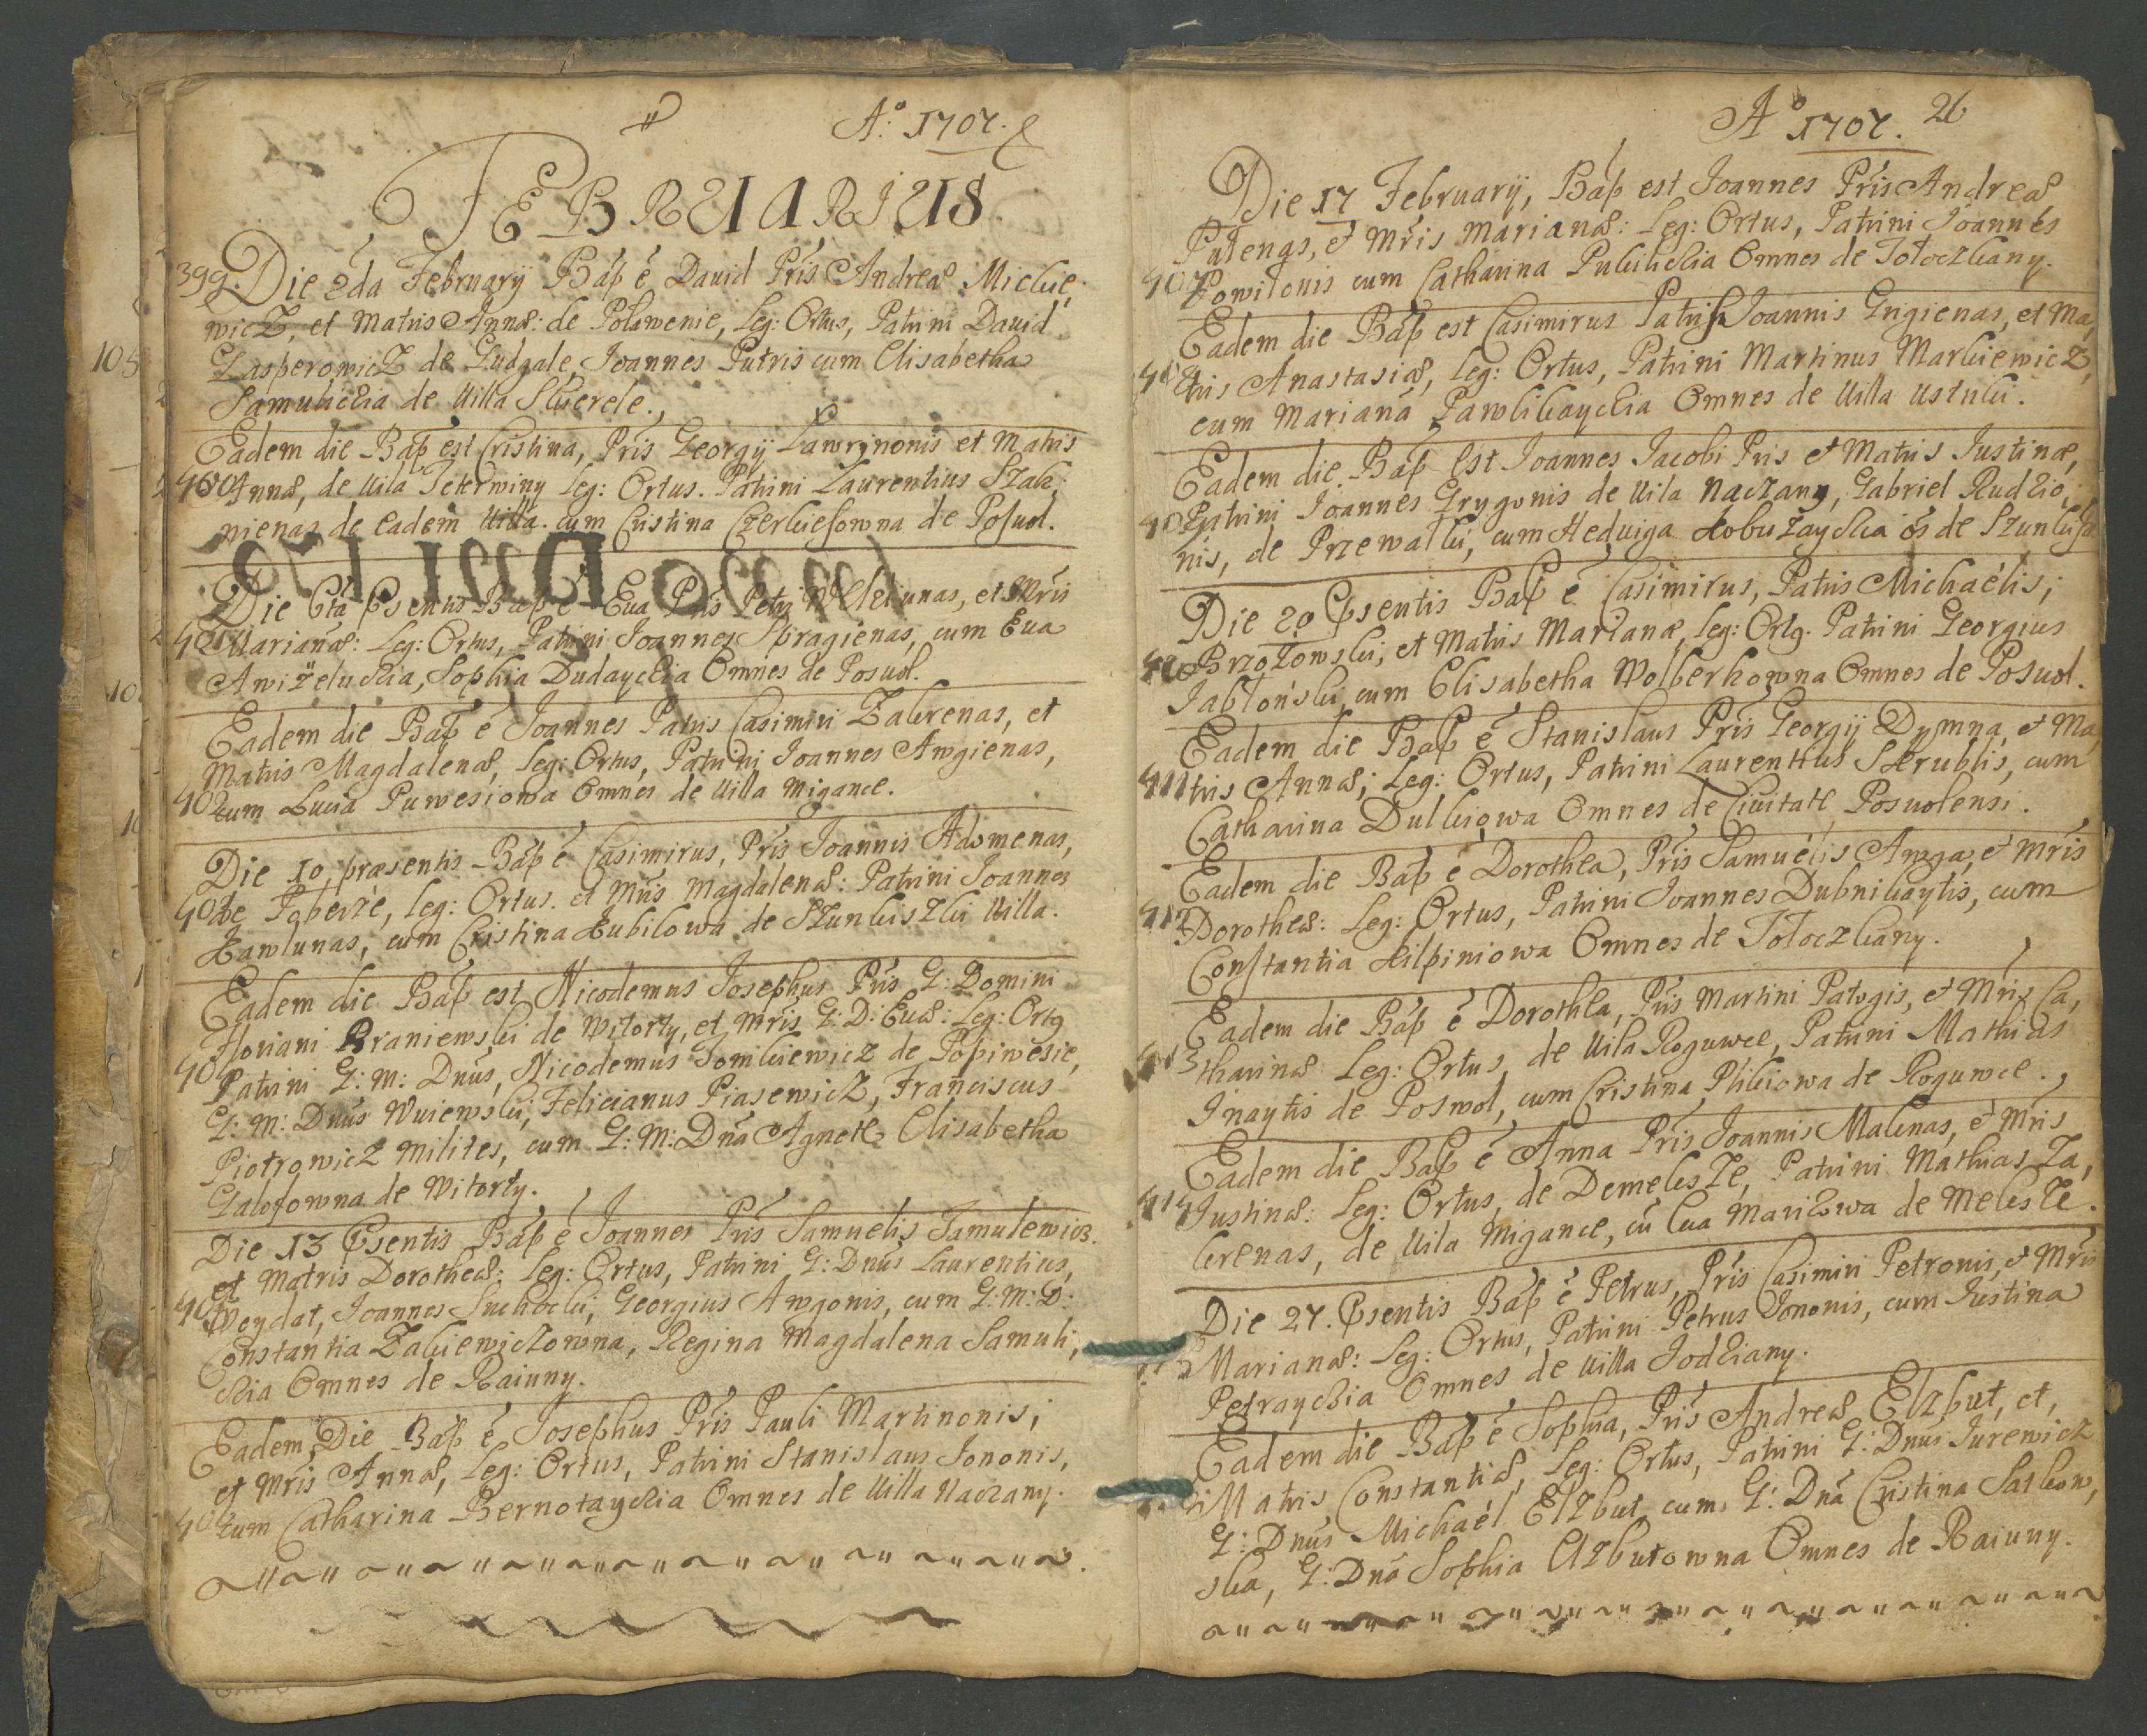 Ao: 1707.
FEBRUARIUS
399. Die 2da February Bap: ē David Pris Andreæ Mickie,
wicZ, et Matris Annæ: de Polawenie, Leg: Ortus, Patrini David
GasperowicZ de Gudgale, Joannes Putris cum Elisabetha
Samulickia de Villa Skierele.
Eadem die Bap est Cristina, Pris Georgij Lawrynonis et Matris
400 Annæ, de Vila Teterwiny Leg: Ortus. Patrini Laurentius Szak,
nienas de eadem Villa. cum Cristina Czerkiesowna de Posuol.
Die 6ta Psentis Bap ē Eua Pris Petri Wel unas, et Mris
401 Marianæ: Leg: Ortus, Patrini Joannes Spiragienas, cum Eua
Awiżeluckia, Sophia Dudayckia Omnes de Posuol.
Eadem die Bap ē Joannes Patris Casimiri Zakrenas, et
Matris Magdalenæ, Leg: Ortus, Patrini Joannes Awgienas,
402 cum Lucia Puwesiowa Omnes de Villa Migance.
Die 10 præsentis Bap ē Casimirus, Pris Joannis Adomenas,
403 de Poberże, Leg: Ortus. et Mris Magdalenæ: Patrini Joannes
Kawlunas, cum Cristina Kubilowa de Szunkiszki Villa.
Eadem die Bap est Nicodemus Josephus Pris G: Domini
Floriani Braniewski de Witorty, et Mris G: D: Euæ: Leg: Ortg
404 Patrini G: M: Dnus, Nicodemus Tomkiewicz de Popiwesie,
G: M: Dnus Wuiewski, Felicianus PiasewicZ, Franciscus
PiotrowicZ Milites, cum G: M: Dnā Agnete Elisabetha
Galofowna de Witorty.
Die 13 Psentis Bap ē Joannes Pris Samuelis Tamulewicz.
et Matris Dorotheæ: Leg: Ortus, Patrini G: Dnus Laurentius,
405 Woydat, Joannes Suchocki, Georgius Awgonis, cum G: M: D:
Constantia Zakiewiczowna, Regina Magdalena Samuli,
ckia Omnes de Raiuny.
Eadem Die Bap ē Josephus Pris Pauli Martinonis,
et Mris Annæ, Leg: Ortus, Patrini Stanislaus Jononis,
406 cum Catharina Bernotayckia Omnes de Villa Naczany.
Ao 1707. 26
Die 17 February, Bap est Joannes Pris Andreæ
Putengs, et Mris Marianæ: Leg: Ortus, Patrini Joannes
407 Powilonis cum Catharina Pukinckia Omnes de Tołoczkany.
Eadem die Bap est Casimirus Patris Joannis Grigienas, et Ma,
408 tris Anastasiæ, Leg: Ortus, Patrini Martinus Markiewicz,
cum Mariana Pawlikayckia Omnes de Villa Ustuki.
Eadem die Bap Est Joannes Jacobi Pris et Matris Justinæ,
409 Patrini Joannes Grygonis de Vila Naczany, Gabriel Rudzio,
nis, de Przewałki, cum Hedviga Kobużayckia ōs de Szunkiszk
Die 20 Psentis Bap ē Casimirus, Patris Michaëlis,
410 Brzozowski, et Matris Marianæ, Leg: Ortg. Patrini Georgius
Jabłoński, cum Elisabetha Wolberkowna Omnes de Posuol.
Eadem die Bap ē Stanislaus Pris Georgij Dymna, et Ma,
411 tris Annæ; Leg: Ortus, Patrini Laurentius Skrublis, cum
Catharina Dulkiowa Omnes de Ciuitate Posuolensi.
Eadem die Bap ē Dorothea, Pris Samuëlis Awga, et Mris
412 Dorotheæ: Leg: Ortus, Patrini Joannes Dubnikaytis, cum
Constantia Kilpiniowa Omnes de Tołoczkany.
Eadem die Bap ē Dorothea, Pris Martini Patogis, et Mris Ca,
413 tharinæ Leg: Ortus, de Vila Roguwce, Patrini Mathias
Inaytis de Poswol, cum Cristina Plikiowa de Roguwce.
Eadem die Bap ē Anna Pris Joannis Malenas, et Mris
414 Justinæ: Leg: Ortus, de Demeksze, Patrini Mathias Za,
krenas, de Vila Migance, cū Eua Mariżowa de Meleksze.
Die 27. Psentis Bap ē Petrus, Pris Casimiri Petronis, et Mris
Marianæ: Leg: Ortus, Patrini Petrus Jononis, cum Justina
Petrayckia Omnes de Villa Jodziany.
Eadem die Bap ē Sophia, Pris Andreæ Elzbut, et,
Matris Constantiæ, Leg: Ortus, Patrini G: Dnus Jurewicz
G: Dnus Michaël Elzbut, cum G: Dnā Cristina Satkow,
ska, G: Dnā Sophia Elzbutowna Omnes de Raiuny.